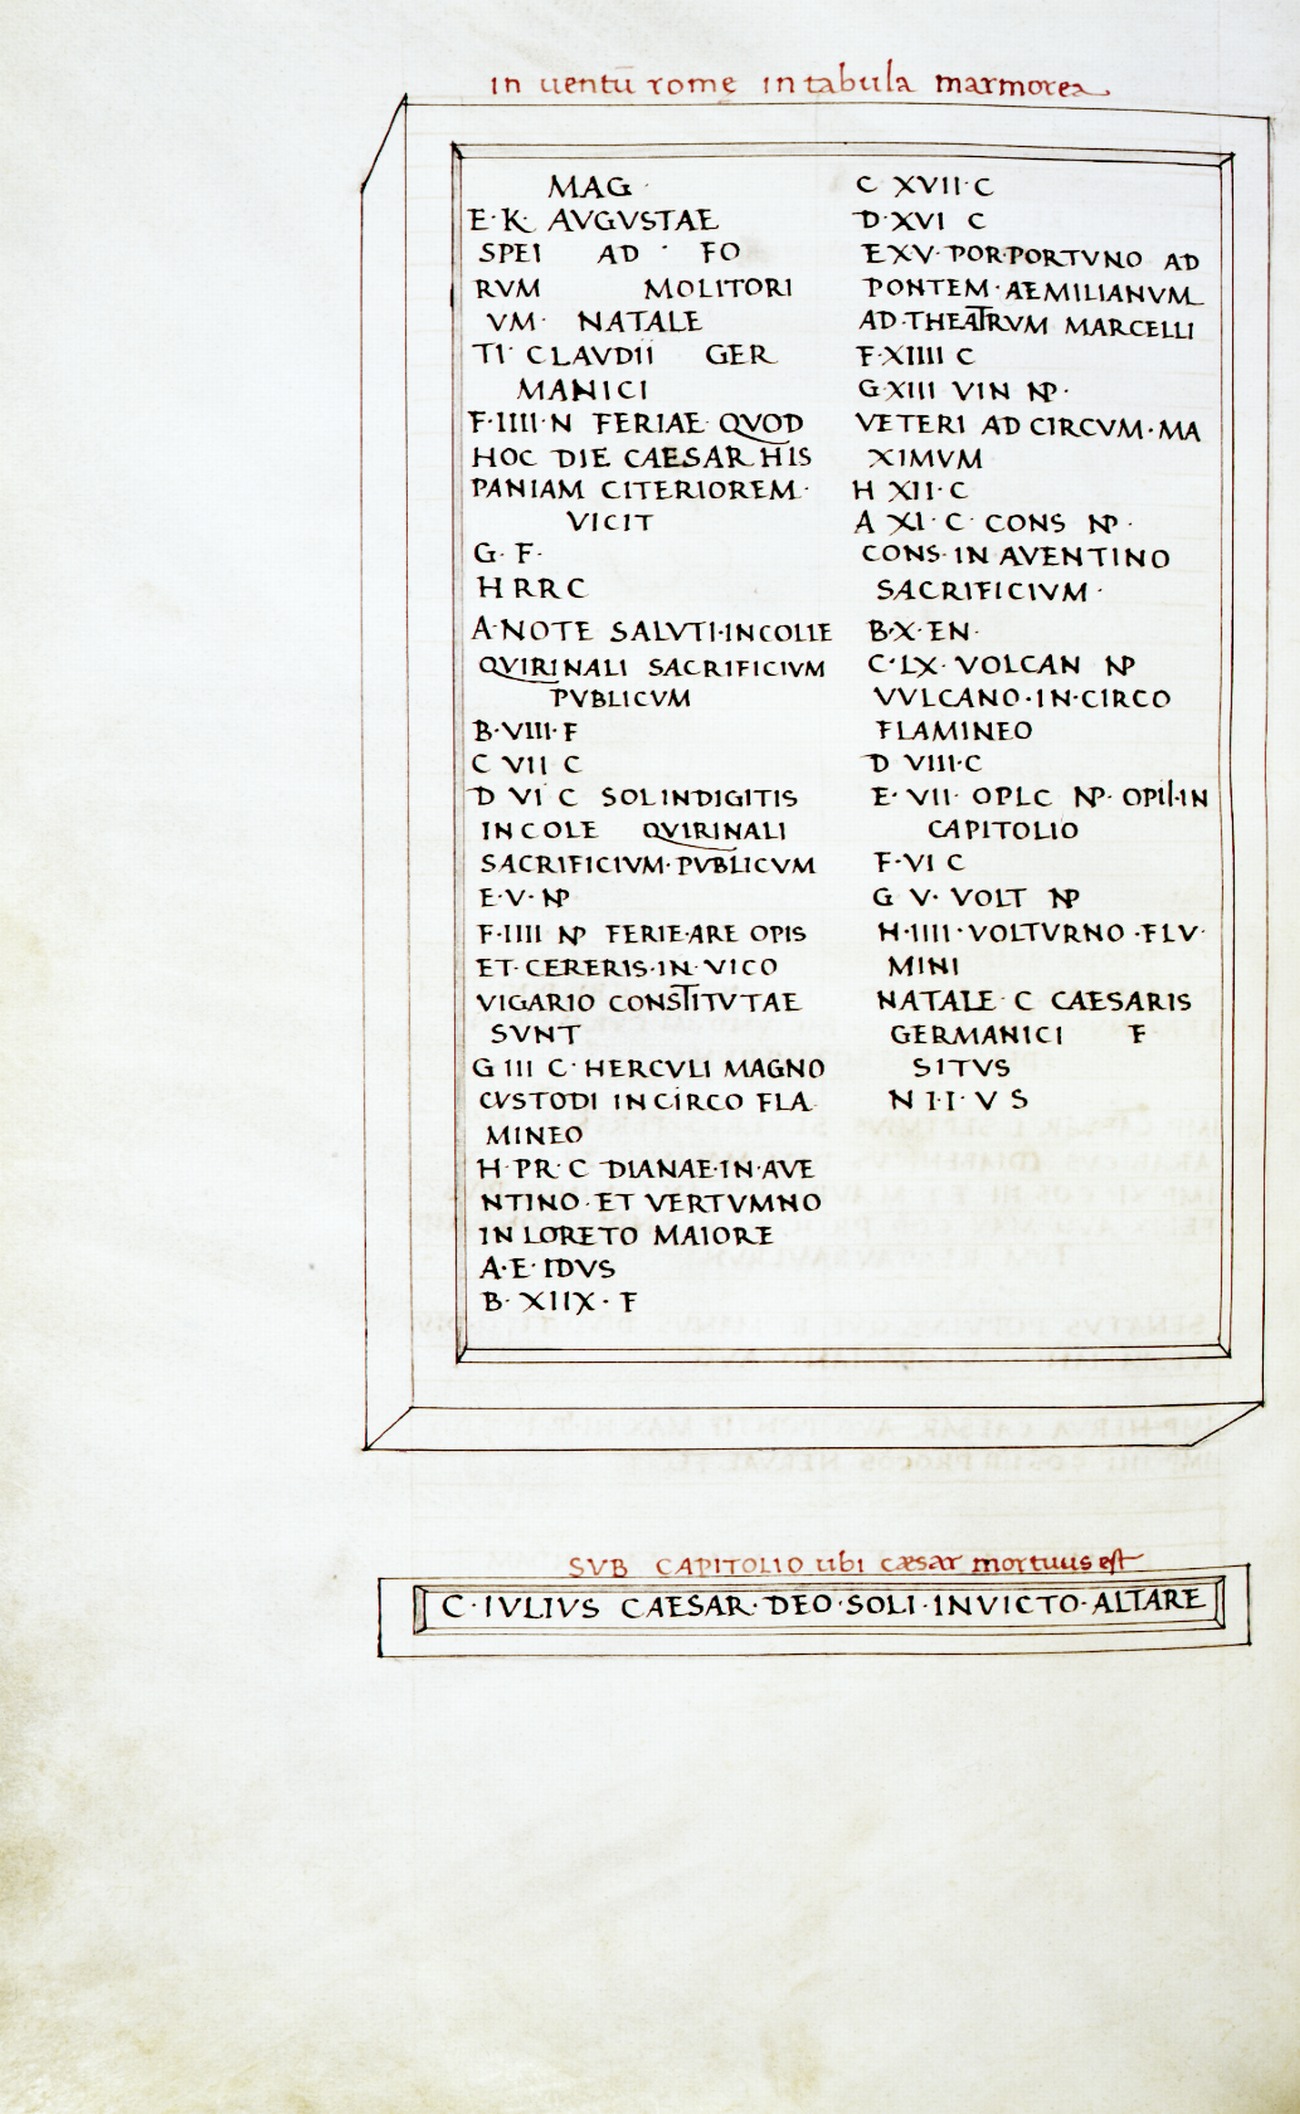 in uentū romę in tabula marmorea
MAG ·
E·K· AVGVSTAE
SPEI AD · FO
RVM MOLITORI
VM· NATALE
TI· CLAVDII GER
MANICI
F·IIII·N FERIAE QVOD
HOC DIE CAESAR HIS
PANIAM CITERIOREM·
VICIT
G· F·
H RR C
A·NOTE SALVTI·IN COLLE
QVIRINALI SACRIFICIVM
PVBLICVM
B·VIII·F
C VII C
D VI C SOL INDIGITIS
IN COLE QVIRINALI
SACRIFICIVM·PVBLICVM
E·V·NP
F·IIII NP FERIE·ARE OPIS
ET·CERERIS·IN·VICO
VIGARIO CONSTITVTAE
SVNT
G III C·HERCVLI MAGNO
CVSTODI IN CIRCO FLA
MINEO
H·PR·C DIANAE·IN·AVE
NTINO·ET VERTVMNO
IN LORETO MAIORE
A·E·IDVS
B·XIIX·F
C XVII·C
D·XVI C
E XV·POR·PORTVNO AD
PONTEM·AEMILIANVM
AD·THEATRVM MARCELLI
F·XIIII C
G·XIII VIN NP·
VETERI AD CIRCVM·MA
XIMVM
H XII·C
A XI·C·CONS NP·
CONS·IN AVENTINO
SACRIFICIVM·
B·X·EN·
C·LX·VOLCAN NP
VVLCANO·IN·CIRCO
FLAMINEO
D VIII·C
E·VII·OPLC NP·OPII·IN
CAPITOLIO
F·VI C
G V·VOLT NP
H·IIII·VOLTVRNO·FLV·
MINI
NATALE·C CAESARIS
GERMANICI F
SITVS
N I·I·V S
SVB CAPITOLIO ubi cæsar mortuus est
C·IVLIVS CAESAR·DEO·SOLI·INVICTO·ALTARE